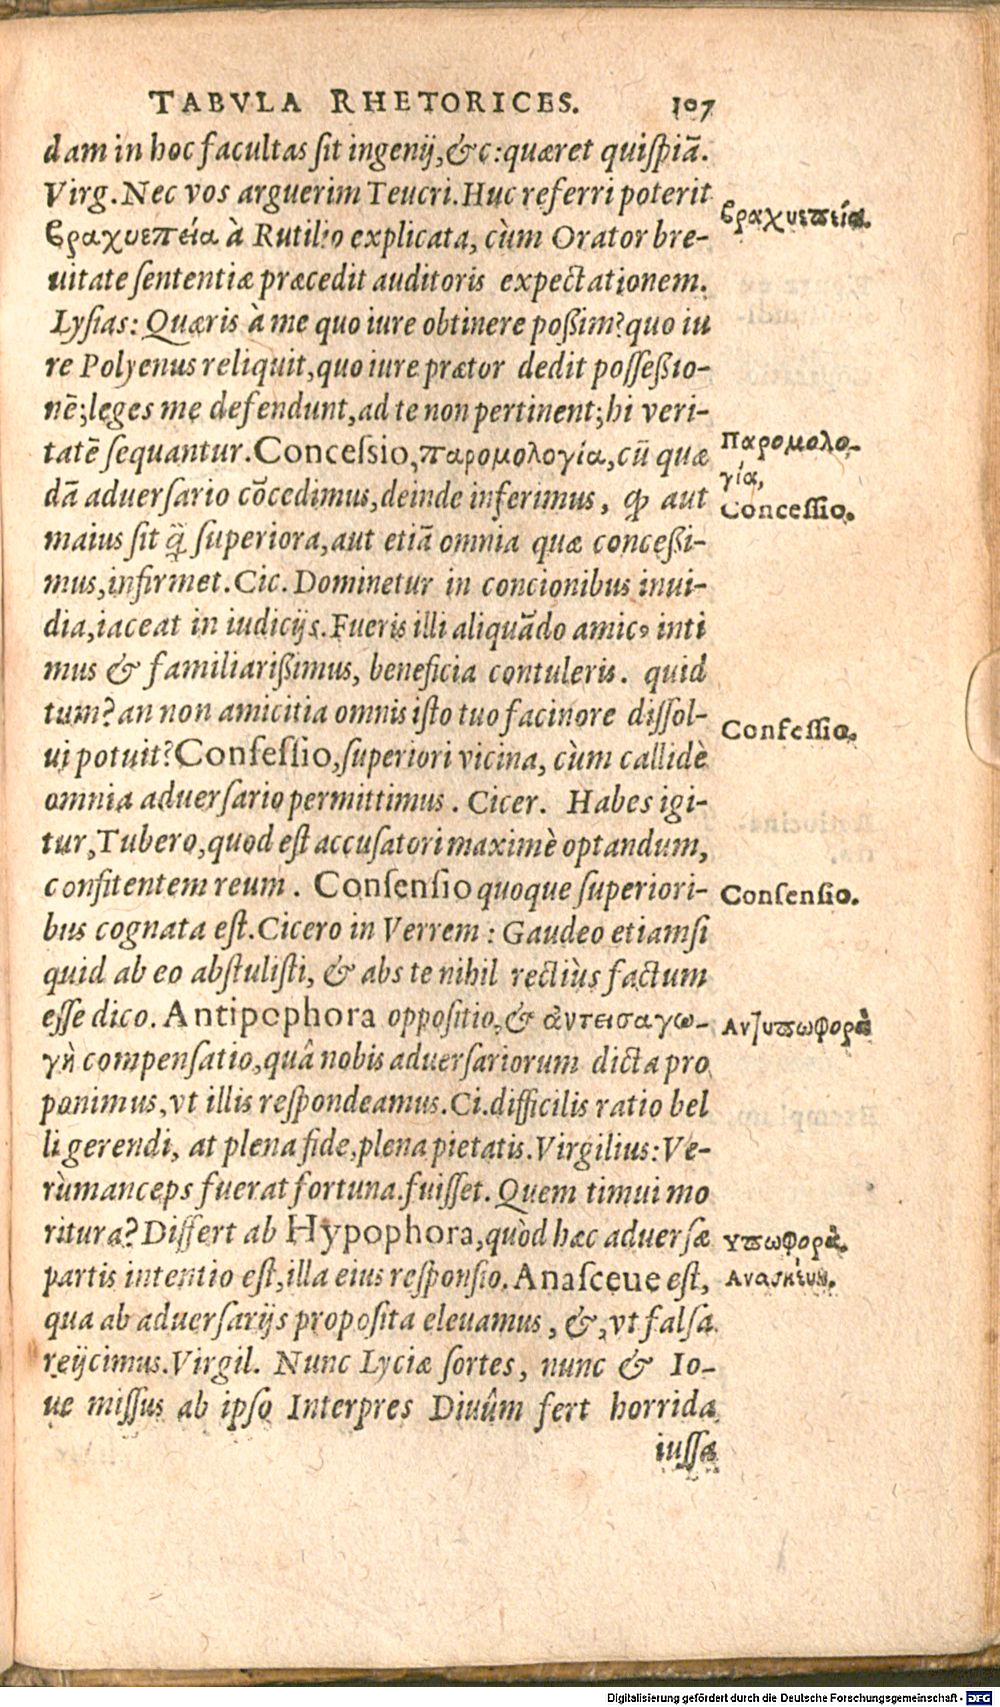 TABVLA RHETORICES. 107
dam in hoc facultas sit ingenij,&c:quæret quispiã.
Virg.Nec vos arguerim Teucri.Huc referri poterit
βραχυεπεία à Rutilio explicata, cùm Orator bre-
uitate sententiæ præcedit auditoris expectationem.
βραχυεπεία.
Lysias: Quæris à me quo iure obtinere poßim?quo iu
re Polyenus reliquit,quo iure prætor dedit possessio-
nẽ;leges me defendunt,ad te non pertinent;hi veri-
tatẽ sequantur.Concessio,παρομολογία,cũ quæ
dã aduersario cõcedimus,deinde inferimus, ꝙ aut
Παρομολο-
γία,
Concessio.
maius sit q̃ superiora,aut etiã omnia quæ conceßi-
mus,infirmet.Cic. Dominetur in concionibus inui-
dia,iaceat in iudicijs.Fueris illi aliquãdo amicꝰ inti
mus & familiarißimus, beneficia contuleris. quid
tum?an non amicitia omnis isto tuo facinore dissol-
ui potuit?Confessio,superiori vicina, cùm callidè
Confessio.
omnia aduersario permittimus. Cicer. Habes igi-
tur,Tubero,quod est accusatori maximè optandum,
confitentem reum. Consensio quoque superiori-
Consensio.
bus cognata est.Cicero in Verrem: Gaudeo etiamsi
quid ab eo abstulisti, & abs te nihil rectiùs factum
esse dico. Antipophora oppositio,& ἀντεισαγω-
Ανθυποφορὰ
γὴ compensatio,quâ nobis aduersariorum dicta pro
ponimus,vt illis respondeamus.Ci.difficilis ratio bel
li gerendi, at plena fide,plena pietatis.Virgilius:Ve-
rùm anceps fuerat fortuna.fuisset. Quem timui mo
ritura?Differt ab Hypophora,quòd hæc aduersæ
Υποφορὰ.
partis intentio est,illa eius responsio.Anasceue est,
Ανασκευὴ.
qua ab aduersarijs proposita eleuamus, &,vt falsa
reijcimus.Virgil. Nunc Lyciæ sortes, nunc & Io-
ue missus ab ipso Interpres Diuûm fert horrida
iussa
Digitalisierung gefördert durch die Deutsche Forschungsgemeinschaft - DFG